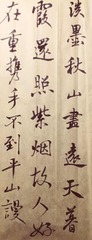 淡墨秋山畫遠天暮
霞還照紫烟故人好
在重携手不到平山謾